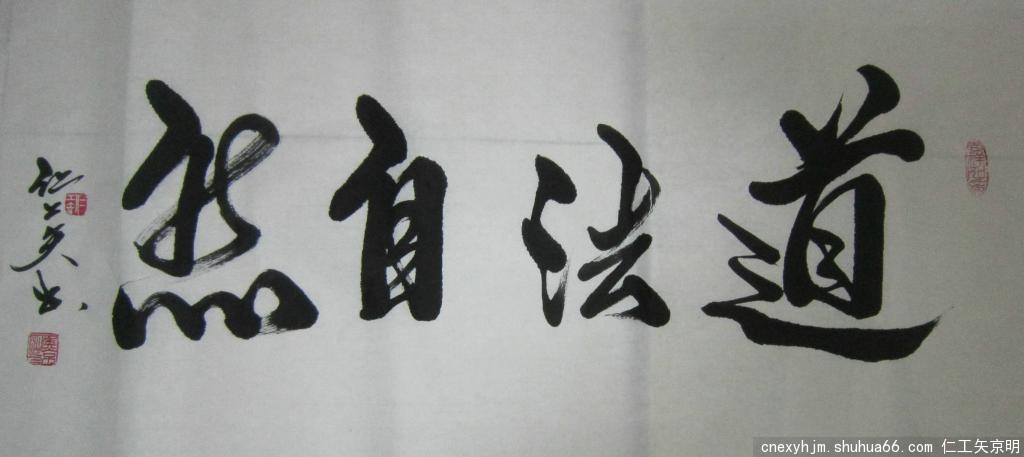 道法自然
仁工矢书
cnexyhjm.shuhua66.com 仁工矢京明